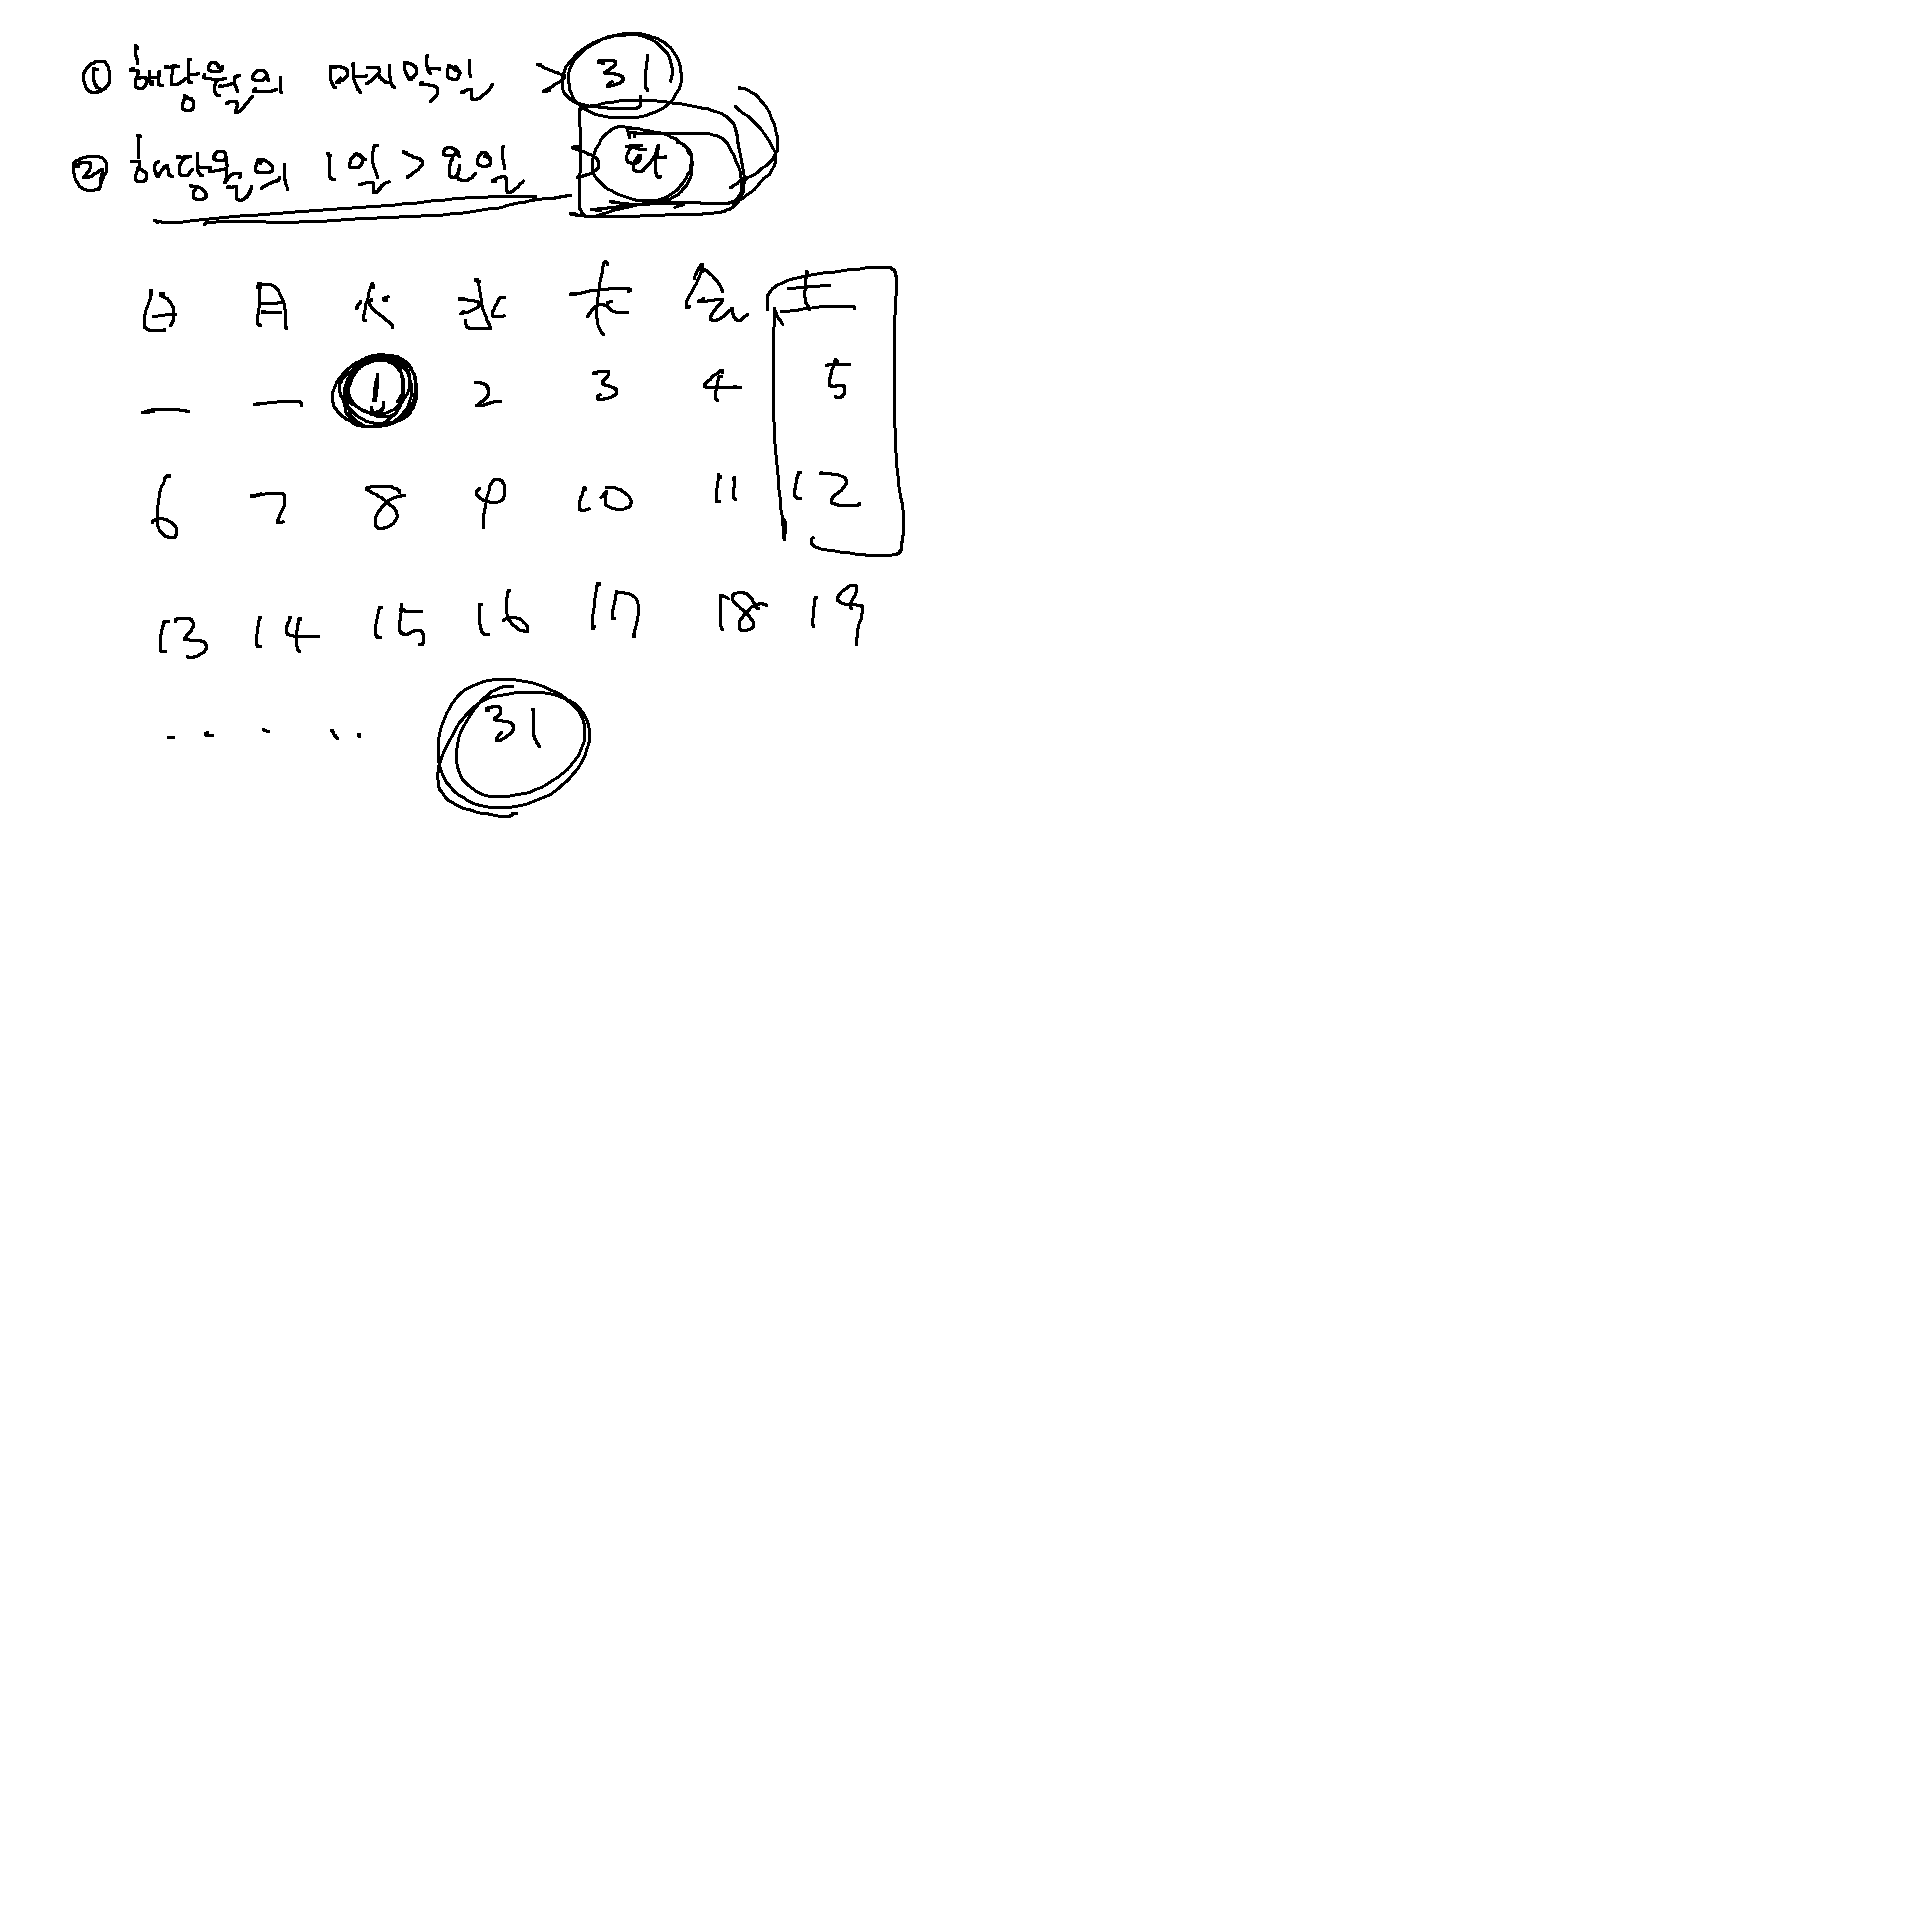 ① 해당월의 마지막일 > 31
② 해당월의 1일 > 요일 > 화
日 月 火 水 木 金 土
— — 1 2 3 4 5
6 7 8 9 10 11 12
13 14 15 16 17 18 19
..... 31